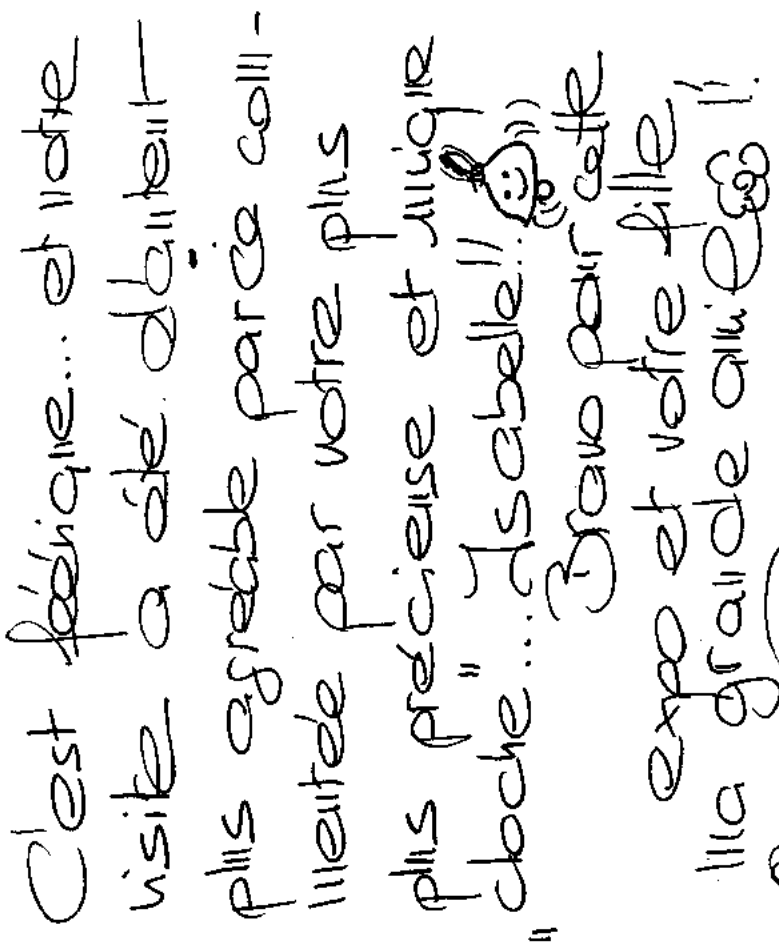 C'est féérique... et notre
visite a été d'autant
plus agréable parce com-
mentée par votre plus
plus précieuse et unique
"cloche..." Isabelle!!
Bravo pour cette
expo et votre fille
ma grande amie!!